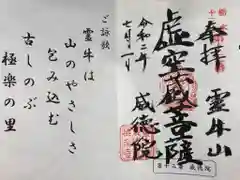 奉拝
霊牛山
虚空蔵菩薩
威徳院
令和二年
七月一日
ご詠歌
霊牛は
山のやさしさ
包み込む
古しのぶ
極楽の里